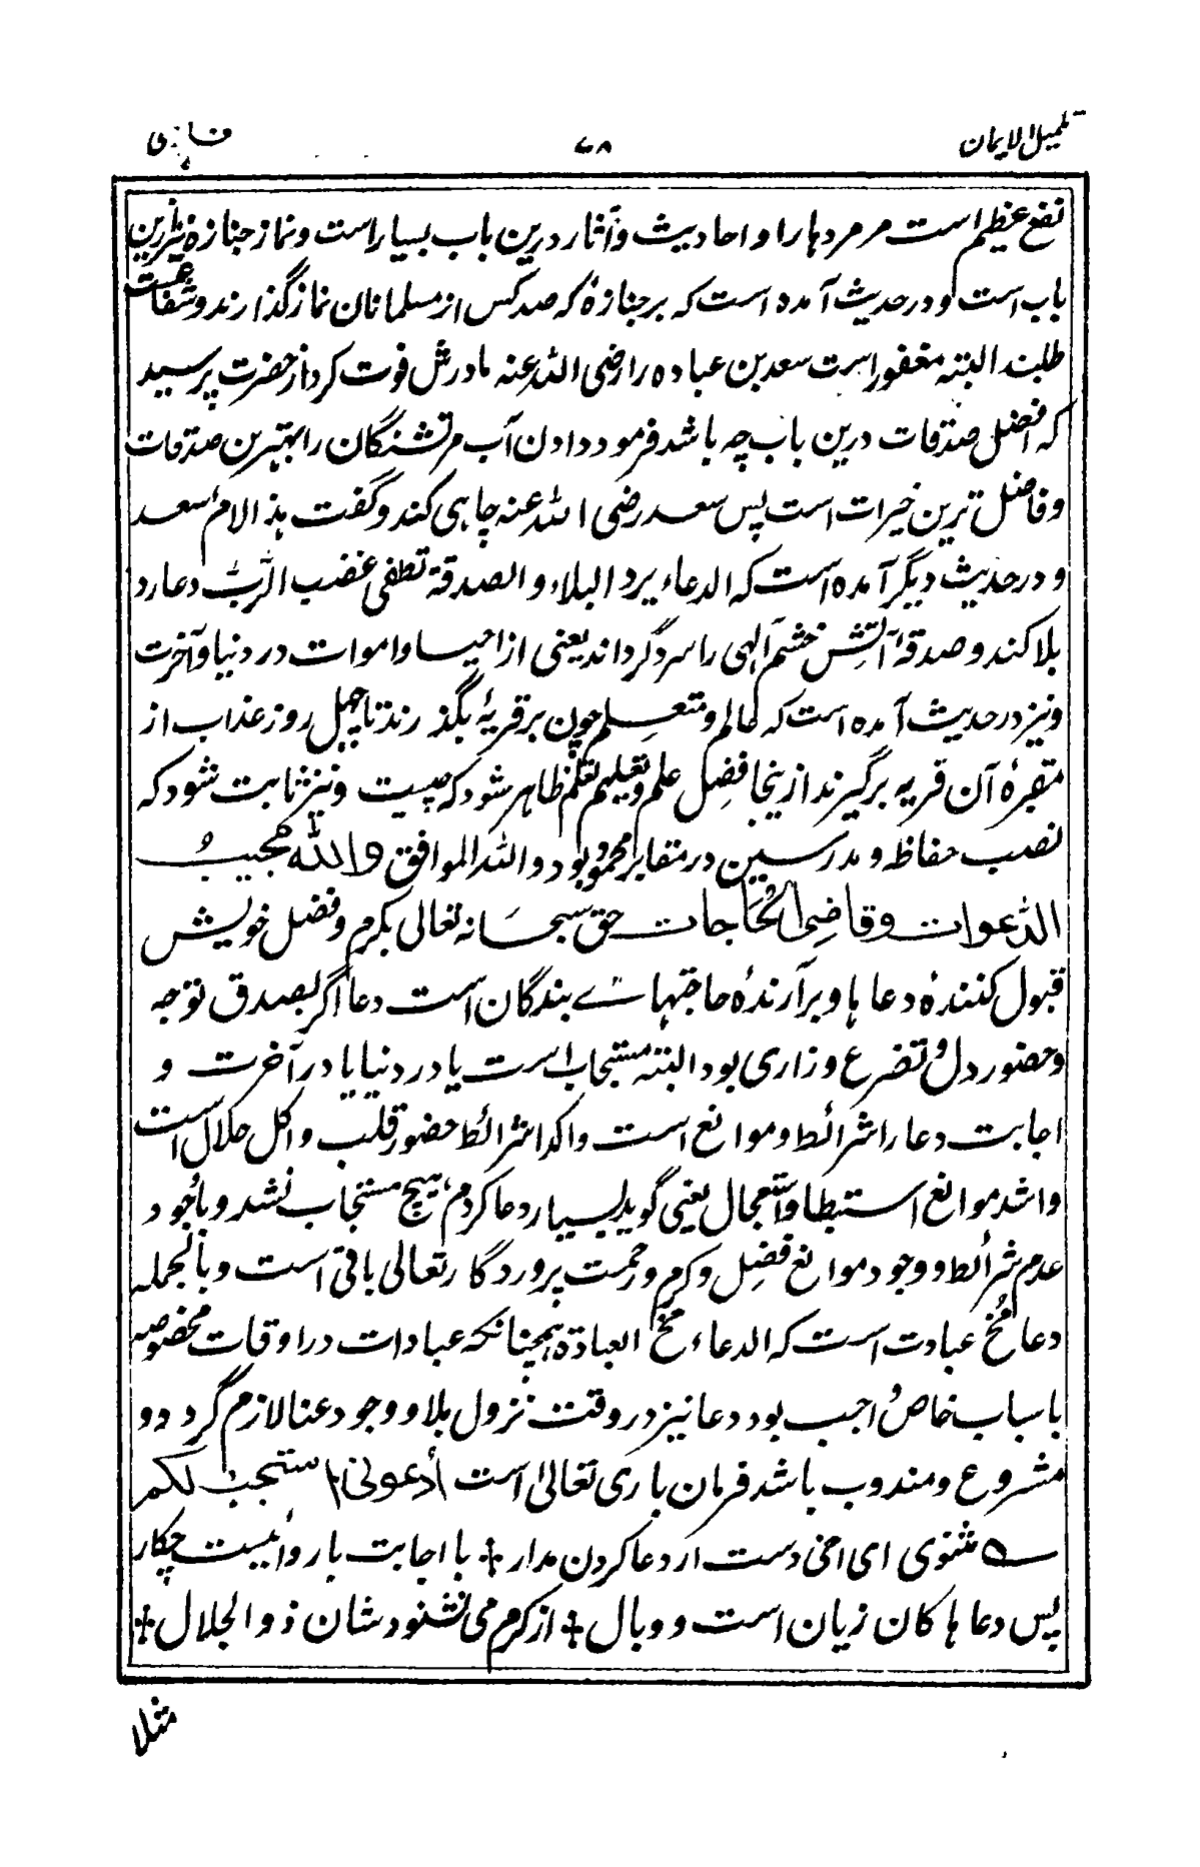 تکمیل الایمان ۷۸ فارسی
نفع عظیم است مر مردہا را و احادیث و آثار درین باب بسیار است و نماز جنازہ نیز ازین
باب است و در حدیث آمدہ است کہ بر جنازۂ کہ صد کس از مسلمانان نماز گذارند و شفاعت
طلبند البتہ مغفور است سعد بن عبادہ را رضی اللہ عنہ مادرش فوت کرد از حضرت پرسید
کہ افضل صدقات درین باب چہ باشد فرمود دادن آب مر تشنگان را بہترین صدقات
و فاضل ترین خیرات است پس سعد رضی اللہ عنہ چاہی کند و گفت ہذا لام سعد
و در حدیث دیگر آمدہ است کہ الدعاء یرد البلاء و الصدقۃ تطفی غضب الربّ دعا رد
بلا کند و صدقہ آتش خشم الٰہی را سرد گرداند یعنی از احیا و اموات در دنیا و آخرت
و نیز در حدیث آمدہ است کہ عالم و متعلم چون بر قریۂ بگذرند تا چہل روز عذاب از
مقبرۂ آن قریہ برگیرند ازینجا فضل علم و تعلیم تعلم ظاہر شود کہ چیست و نیز ثابت شود کہ
نصب حفاظ و مدرسین در مقابر محمود بود و اللہ الموافق واللہ مجیبُ
الدعوات وقاضی الحاجات حق سبحانہ تعالی بکرم و فضل خویش
قبول کنندۂ دعاہا و برآرندۂ حاجتہاے بندگان است دعا اگر بصدق توجہ
و حضور دل و تضرع و زاری بود البتہ مستجاب است یا در دنیا یا در آخرت و
اجابت دعا را شرائط و موانع است و اکد شرائط حضور قلب و اکل حلال است
و اشد موانع استبطا و استعجال یعنی گوید بسیار دعا کردم ہیچ مستجاب نشد و باوجود
عدم شرائط و وجود موانع فضل و کرم و رحمت پروردگار تعالی باقی است و بالجملہ
دعا مخ عبادت است کہ الدعاء مخ العبادۃ ہمچنانکہ عبادات در اوقات مخصوصہ
باسباب خاص واجب بود دعا نیز در وقت نزول بلا و وجود عنا لازم گردد و
مشروع و مندوب باشد فرمان باری تعالیٰ است ادعونی استجب لکم
مثنوی ای اخی دست از دعا کردن مدار ٭ با اجابت یا رد اینیست چکار
پس دعاہا کان زیان است و وبال ٭ از کرم می نشنود شان ذوالجلال ٭
مثلا